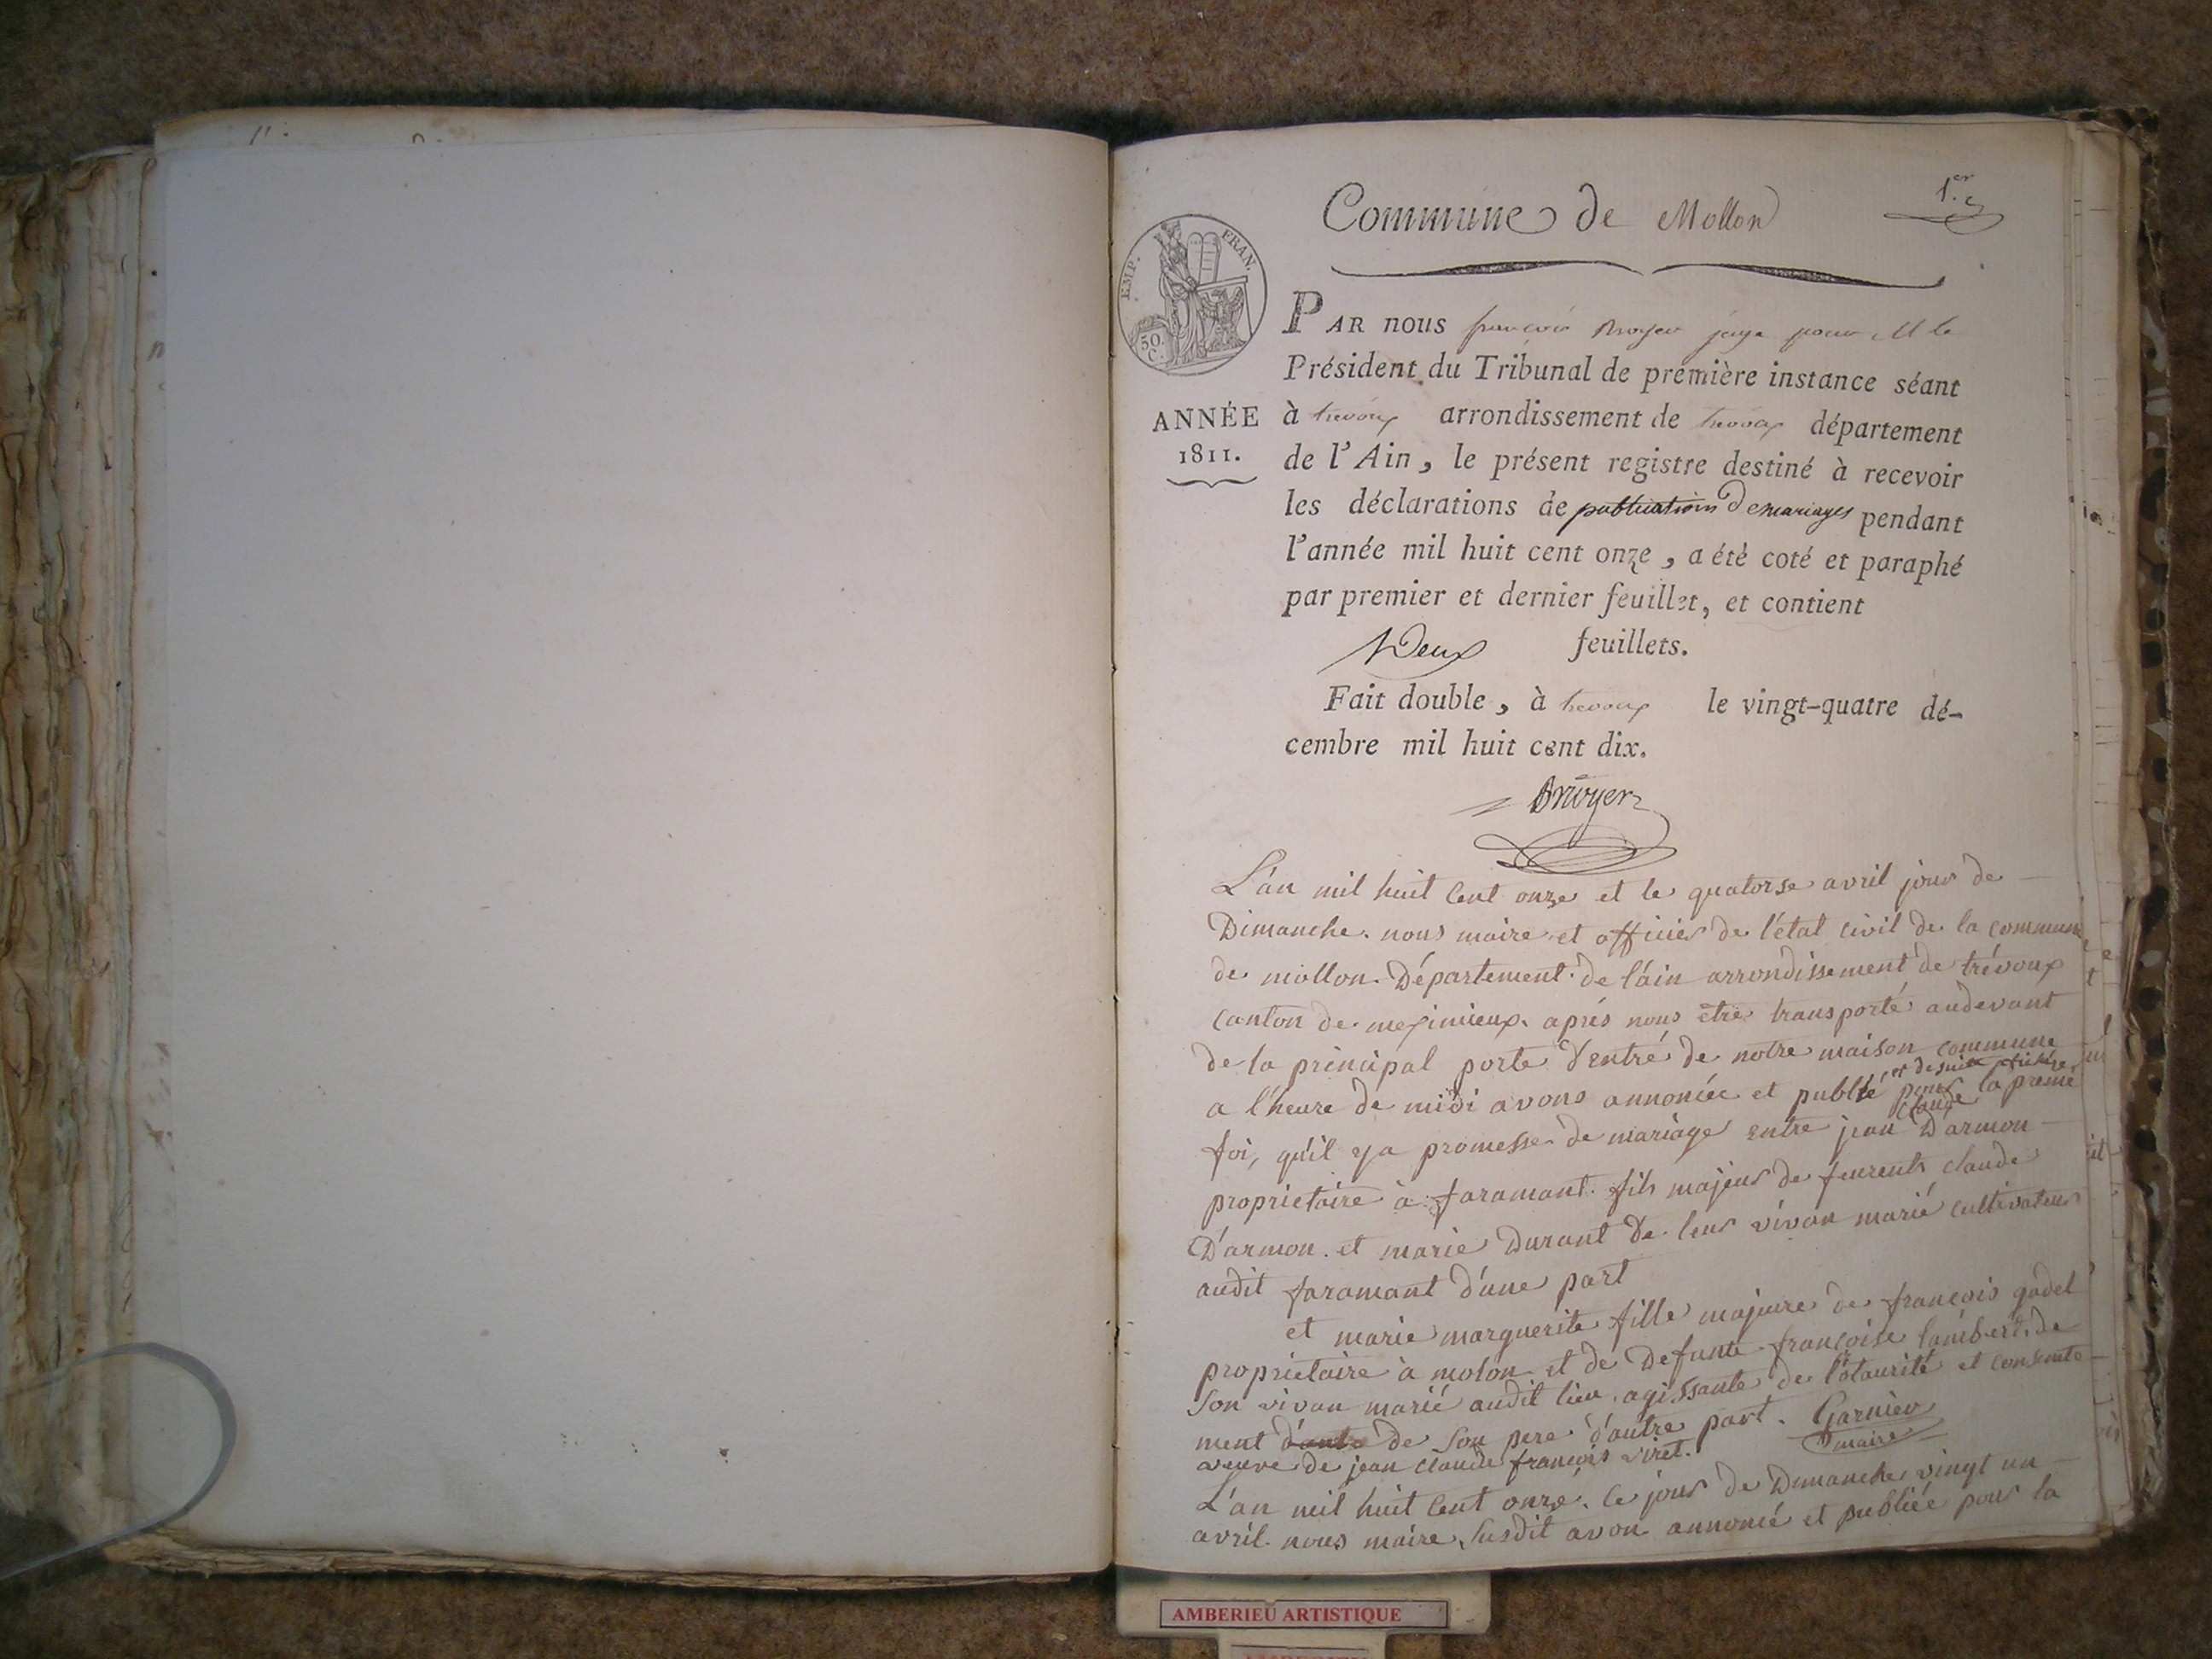 Commune de Mollon
1.er
EMP. FRAN.
50.
C.
ANNÉE
1811.
PAR nous françois Broyer juge pour M le
Président du Tribunal de première instance séant
à trevoux arrondissement de trevoux département
de l'Ain, le présent registre destiné à recevoir
les déclarations de publication de mariages pendant
l'année mil huit cent onze, a été coté et paraphé
par premier et dernier feuillet, et contient
Deux feuillets.
Fait double, à trevoux le vingt-quatre dé-
cembre mil huit cent dix.
Broyer
L'an mil huit Cent onze et le quatorse avril jour de
Dimanche. nous maire et officier de l'état civil de la commune
de mollon. Département de l'ain arrondissement de trévoux
canton de meximieux. aprés nous être transporté audevant
de la principal porte d'entré de notre maison commune
a l'heure de midi avons annoncée et publié et de suite pour la premie
foi, qu'il ya promesse de mariage entre jean claude D'armon
proprietaire à faramant. fils majeur de claude
D'armon. et marie Durant de leur vivan marié cultivateur
audit faramant d'une part
et marie marguerite fille majeure de françois godel
proprietaire à molon et de Defunte françoise lambert. de
son vivan marié audit lieu. agissante de l'otaurité et consente
ment de son pere d'autre part. Garnier
maire
veuve de jean claude françois viret.
L'an mil huit Cent onze. Ce jour de Dimanche vingt un
avril. nous maire, susdit avon annoncé et publiée pour la
AMBERIEU ARTISTIQUE